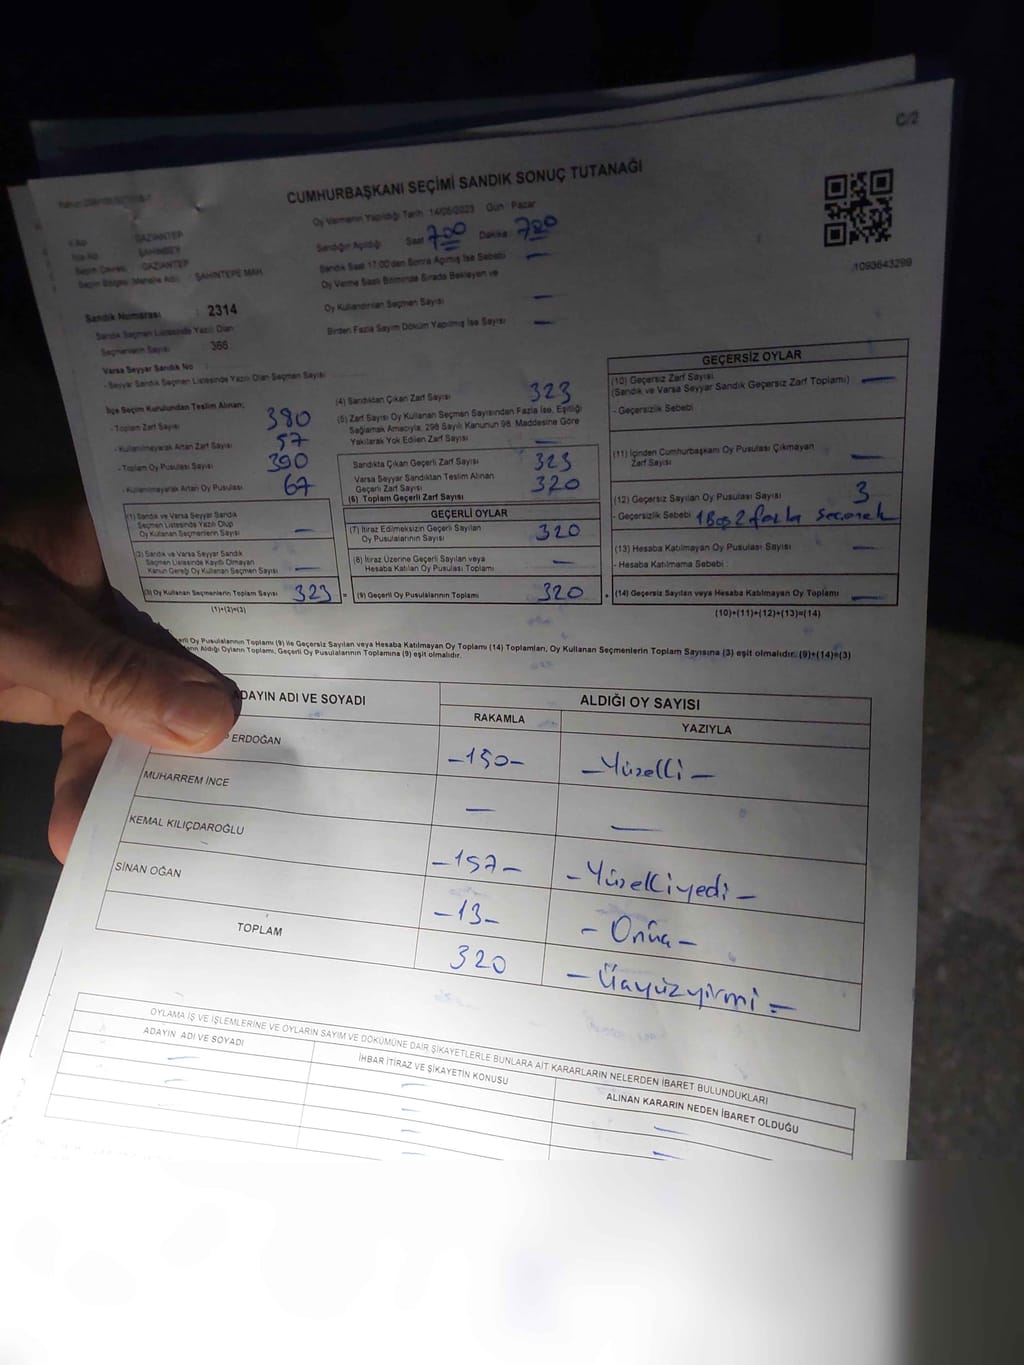 C/2
CUMHURBAŞKANI SEÇİMİ SANDIK SONUÇ TUTANAĞI
Oy Vermenin Yapıldığı Tarih : 14/05/2023 Gün : Pazar
Sandığın Açıldığı Saat 7:00 Dakika:
Sandık Saat 17:00'den Sonra Açılmış İse Sebebi —
Oy Verme Saati Bitiminde Sırada Bekleyen ve
Oy Kullandırılan Seçmen Sayısı —
Birden Fazla Sayım Döküm Yapılmış İse Sayısı —
1093643299
İl Adı : GAZİANTEP
İlçe Adı : ŞAHİNBEY
Seçim Çevresi : GAZİANTEP
Seçim Bölgesi (Mahalle Adı) : ŞAHİNTEPE MAH.
Sandık Numarası : 2314
Sandık Seçmen Listesinde Yazılı Olan
Seçmenlerin Sayısı : 366
Varsa Seyyar Sandık No :
- Seyyar Sandık Seçmen Listesinde Yazılı Olan Seçmen Sayısı :
İlçe Seçim Kurulundan Teslim Alınan;
- Toplam Zarf Sayısı 380
- Kullanılmayarak Artan Zarf Sayısı 57
- Toplam Oy Pusulası Sayısı 390
- Kullanılmayarak Artan Oy Pusulası 67
(1) Sandık ve Varsa Seyyar Sandık
Seçmen Listesinde Yazılı Olup
Oy Kullanan Seçmenlerin Sayısı —
(2) Sandık ve Varsa Seyyar Sandık
Seçmen Listesinde Kayıtlı Olmayan
Kanun Gereği Oy Kullanan Seçmen Sayısı —
(3) Oy Kullanan Seçmenlerin Toplam Sayısı 323 =
(1)+(2)=(3)
(4) Sandıktan Çıkan Zarf Sayısı 323
(5) Zarf Sayısı Oy Kullanan Seçmen Sayısından Fazla İse, Eşitliği
Sağlamak Amacıyla, 298 Sayılı Kanunun 98. Maddesine Göre
Yakılarak Yok Edilen Zarf Sayısı —
Sandıkta Çıkan Geçerli Zarf Sayısı 323
Varsa Seyyar Sandıktan Teslim Alınan
Geçerli Zarf Sayısı 320
(6) Toplam Geçerli Zarf Sayısı
GEÇERLİ OYLAR
(7) İtiraz Edilmeksizin Geçerli Sayılan
Oy Pusulalarının Sayısı 320
(8) İtiraz Üzerine Geçerli Sayılan veya
Hesaba Katılan Oy Pusulası Toplamı —
(9) Geçerli Oy Pusulalarının Toplamı 320 +
GEÇERSİZ OYLAR
(10) Geçersiz Zarf Sayısı
(Sandık ve Varsa Seyyar Sandık Geçersiz Zarf Toplamı) —
- Geçersizlik Sebebi
(11) İçinden Cumhurbaşkanı Oy Pusulası Çıkmayan
Zarf Sayısı —
(12) Geçersiz Sayılan Oy Pusulası Sayısı 3
- Geçersizlik Sebebi 1 Boş 2 fazla seçenek
(13) Hesaba Katılmayan Oy Pusulası Sayısı —
- Hesaba Katılmama Sebebi :
(14) Geçersiz Sayılan veya Hesaba Katılmayan Oy Toplamı —
(10)+(11)+(12)+(13)=(14)
Oy Pusulalarının Toplamı (9) ile Geçersiz Sayılan veya Hesaba Katılmayan Oy Toplamı (14) Toplamları, Oy Kullanan Seçmenlerin Toplam Sayısına (3) eşit olmalıdır. (9)+(14)=(3)
Aldığı Oyların Toplamı, Geçerli Oy Pusulalarının Toplamına (9) eşit olmalıdır.
ADAYIN ADI VE SOYADI ALDIĞI OY SAYISI
RAKAMLA YAZIYLA
ERDOĞAN -150- - Yüzelli -
MUHARREM İNCE — —
KEMAL KILIÇDAROĞLU -157- - Yüzelliyedi -
SİNAN OĞAN -13- - Onüç -
TOPLAM 320 - Üçyüzyirmi -
OYLAMA İŞ VE İŞLEMLERİNE VE OYLARIN SAYIM VE DÖKÜMÜNE DAİR ŞİKAYETLERLE BUNLARA AİT KARARLARIN NELERDEN İBARET BULUNDUKLARI
ADAYIN ADI VE SOYADI İHBAR İTİRAZ VE ŞİKAYETİN KONUSU ALINAN KARARIN NEDEN İBARET OLDUĞU